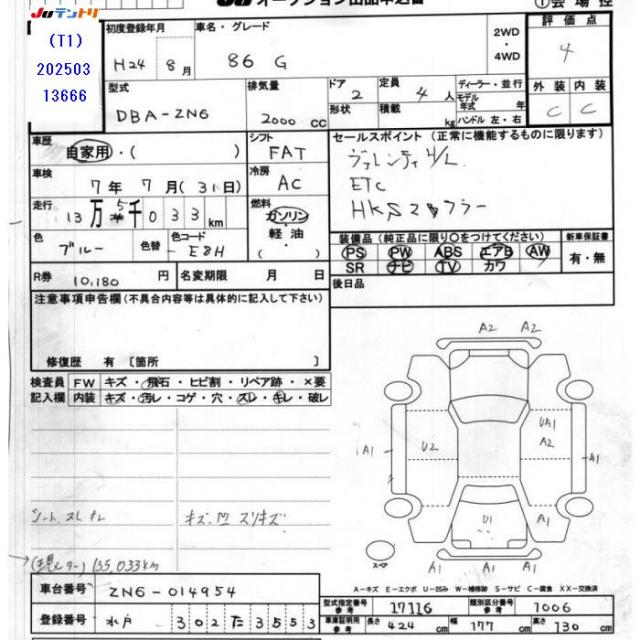 JUテントリ オークション出品申込書 ①会場控
(T1)
202503
13666
初度登録年月 車名・グレード 2WD・4WD 評価点
H24年 8月 86 G 4
型式 排気量 ドア 定員 ディーラー・並行 外装 内装
DBA-ZN6 2000 CC 2 4人 モデル年式 年
形状 積載 kg ハンドル 左・右 C C
車歴 自家用・( ) シフト FAT セールスポイント(正常に機能するものに限ります)
車検 7年 7月(31日) 冷房 AC ETC
走行 13万5千033km 燃料 ガソリン・軽油・ HKSマフラー
色 ブルー 色替 色コード E8H
装備品(純正品に限り○をつけてください) 新車保証書
PS PW ABS エアB AW 有・無
SR ナビ TV カワ
R券 10,180円 名変期限 月 日 後日品
注意事項申告欄(不具合内容等は具体的に記入して下さい)
修復歴 有〔箇所 〕
検査員 FW キズ・飛石・ヒビ割・リペア跡・×要
記入欄 内装 キズ・汚レ・コゲ・穴・スレ・キレ・破レ
A2 A2
A1 U2 UA1 A2 A1
U1 A1
A1 A1
スペア
シートスレキレ キズ凹スリキズ
(現メーター)135,033km
A-キズ E-エクボ U-凹み W-補修跡 S-サビ C-腐食 XX-交換済
車台番号 ZN6-014954
型式指定番号 参考 17116 類別区分番号 参考 1006
登録番号 水戸 302た3553
車庫証明用 参考 長さ 424cm 幅 177cm 高さ 130cm